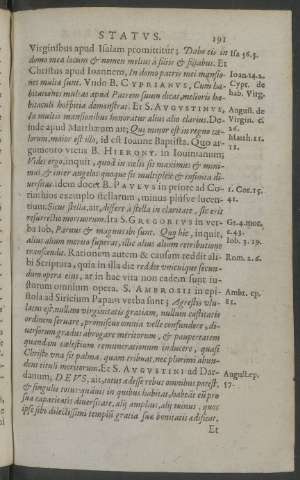 STATVS. 191
Virginibus apud Isaiam promittitur; Dabo eis in Isa 56.5.
domo mea locum & nomen melius à filiis & filiabus. Et
Christus apud Ioannem, In domo patris mei mansio- Ioan.14.2.
nes multæ sunt. Vndo B. CYPRIANVS, Cum ha- Cypt. de
bitaciones multas apud Patrem suum dicat, melioris ha- hab. Virg.
bitaculi hospitia demonstrat. Et S. AVGVSTINVS, August. de
In multis mansionibus honoratur alius alio clarius. De- Virgin. c.
inde apud Matthæum ait; Qui minor est in regno cæ- 26.
lorum, maior est illo, id est Ioanne Baptista. Quo ar- Matth.11.
gumento victus B. HIERONY. in Iouinianum; 11.
Vides ergo, inquit, quòd in cœlis sit maximus & mini-
mus, & inter angelos quoque sit multiplex & infinita di-
uersitas. idem docet B. PAVLVS in priore ad Co- 1. Cor.15.
rinthios exemplo stellarum, minus plusve lucen- 41.
tium. Sicut stella, ait, differt à stella in claritate, sic erit
resurrectio mortuorum. Ita S. GREGORIVS in ver- Gr.4.mor.
ba Iob, Paruus & magnus ibi sunt. Quo hic, inquit, c.43.
alius alium merito superat, illic alius alium retributione Iob. 3.19.
transcendit. Rationem autem & causam reddit ali-
bi Scriptura, quia in illa die reddet unicuique secun- Rom. 2.6.
dum opera eius, at in hac vita non eadem sunt iu-
storum omnium opera. S. AMBROSII in epi- Ambr. ep.
stola ad Siricium Papam verba sunt; Agrestis ulu- 81.
latus est nullam virginitatis gratiam, nullum castitatis
ordinem seruare, promiscuè omnia velle confundere, di-
uersorum gradus abrogare meritorum, & paupertatem
quandam cœlestium remunerationum inducere, quasi
Christo vna sit palma, quam tribuat, nec plurimi abun-
dent tituli meritorum. Et S. AVGVSTINI ad Dar-
danum; DEVS, ait, totus adesse rebus omnibus potest, August.ep.
& singulis totus, quamuis in quibus habitat, habeāt eū pro 57.
suæ capacitatis diuersitate, alij amplius, alij minus, quos
ipse sibi dilectissimū templū gratia suæ bonitatis ædificat.
Et